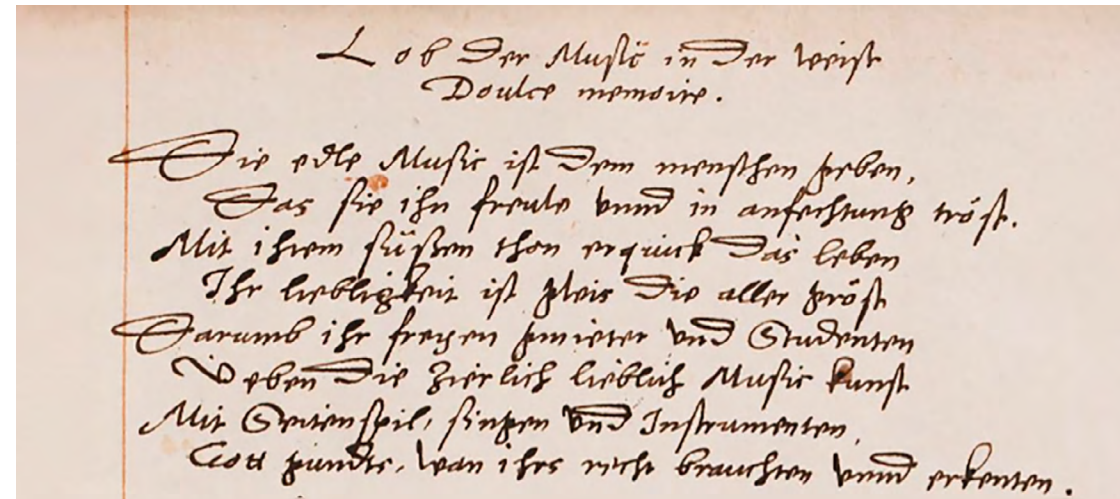 Lob der Music in der weise
Doulce memoire.
Die edle Music ist dem menschen geben,
Das sie ihn freule vnnd in anfechtung tröst.
Mit ihrem süßen thon erquick das leben
Ihr liebligkeit ist gleis die aller gröst
Darumb ihr freyen gmieter vnd Studenten
Veben die zierlich lieblich Music kunst
Mit Seitenspil, singen vnd Instrumenten,
Gott gundts, wan ihrs recht brauchten vnnd erkenten.